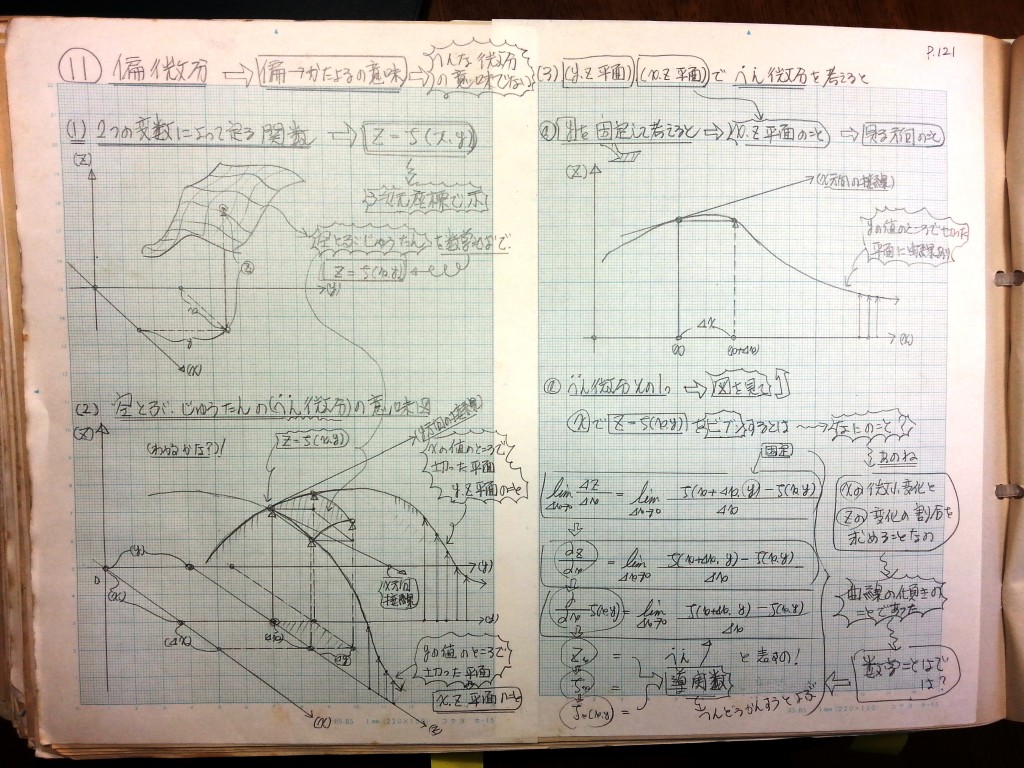 P.121
⑪ 偏微分 ⇒ 偏→かたよるの意味 ⇒
の意味でない
(1) 2つの変数によって定る関数 → Z=f(x.y)
(Z)
三次元座標で示
空とぶじゅうたん を数学ことばで
Z=f(x,y)
(y)
(x)
(2) 空とぶ.じゅうたんの(へん微分)の意味図
(Z)
(わかるかな?)!
Z=f(x,y)
xの値のところで
切った平面
y.z平面のこと
(y)
(y)
0
(x)
(Δx)
x方向
接線
yの値のところで
切った平面
x.z平面のこと
(x)
(3) (y.z平面) (x.z平面)で へん微分を考えると
① yを固定して考えると ⇒ x.z平面のこと ⇒ 見る方向のこと
(Z)
(x方向の接線)
yの値のところで切った
平面に曲線あり
Δx
(x) (x+Δx) (x)
② へん微分その1。 ⇒ 図を見て
xで Z=f(x,y) をビブンするとは 〜 なにのこと?
固定
あのね
lim Δx→0 ΔZ/Δx = lim Δx→0 f(x+Δx,y)-f(x,y)/Δx
xの微小変化と
Zの変化の割合を
求めることなの
∂z/∂x = lim Δx→0 f(x+Δx,y)-f(x,y)/Δx
曲線の傾きの
ことであった
∂/∂x f(x,y) = lim Δx→0 f(x+Δx,y)-f(x,y)/Δx
数学ことばで
は?
Zx = へん と表すの!
fx = 導関数
fx(x,y) = へんどうかんすうとよぶ